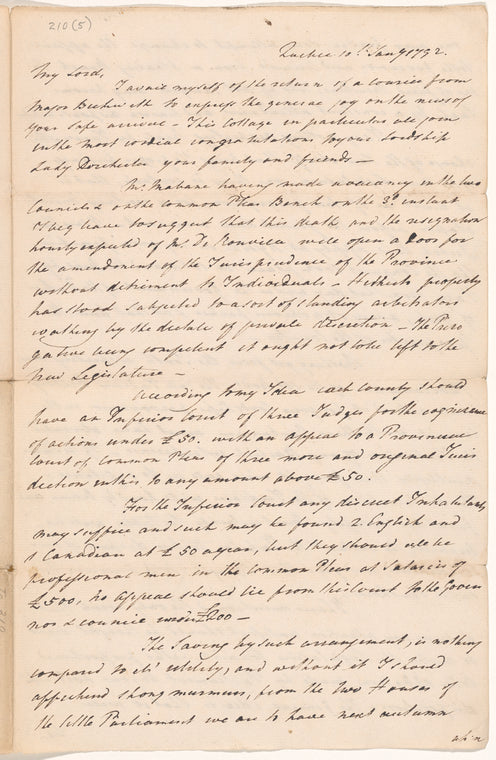 210(5)
Quebec 10th Jany 1792.
My Lord,
I avail myself of the return of a courier from
Major Beckwith to express the general joy on the news of
your safe arrival - This Cottage in particular all join
in the most cordial congratulations to your Lordship
Lady Dorchester your family and friends -
Mr. Mabane having made a vacancy in the two
Councils & on the common Pleas Bench on the 3d. instant
I beg leave to suggest that this death and the resignation
hourly expected of Mr. De Rouville will open a Door for
the amendment of the Jurisprudence of the Province
without detriment to Individuals - Hitherto property
has stood subjected to a sort of standing arbitrators
working by the dictate of private discretion - The Prero
gative being competent it ought not to be left to the
new Legislature -
According to my Idea each County should
have an Inferior Court of three Judges for the cognizance
of actions under £50. with an appeal to a Provincial
Court of Common Pleas of three more and original Juris
diction in this to any amount above £50.
For the Inferior Court any discreet Inhabitants
may suffice and such may be found 2 English and
1 Canadian at £50 a year, but they should all be
professional men in the Common Pleas at Salaries of
£500, no appeal should lie from this Court to the Gover
nor & council under £200 -
The Saving by such arrangement, is nothing
compared to its' utility, and without it I should
apprehend strong murmurs, from the two Houses of
the little Parliament we are to have next autumn